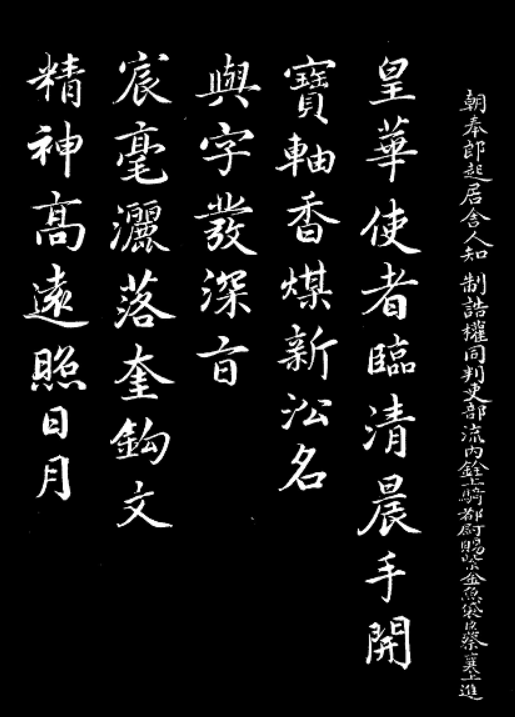 朝奉郎起居舍人知制誥權同判吏部流內銓上騎都尉賜紫金魚袋臣蔡襄上進
皇華使者臨清晨手開
寶軸香煤新沄名
與字發深旨
宸毫灑落奎鈎文
精神高遠照日月